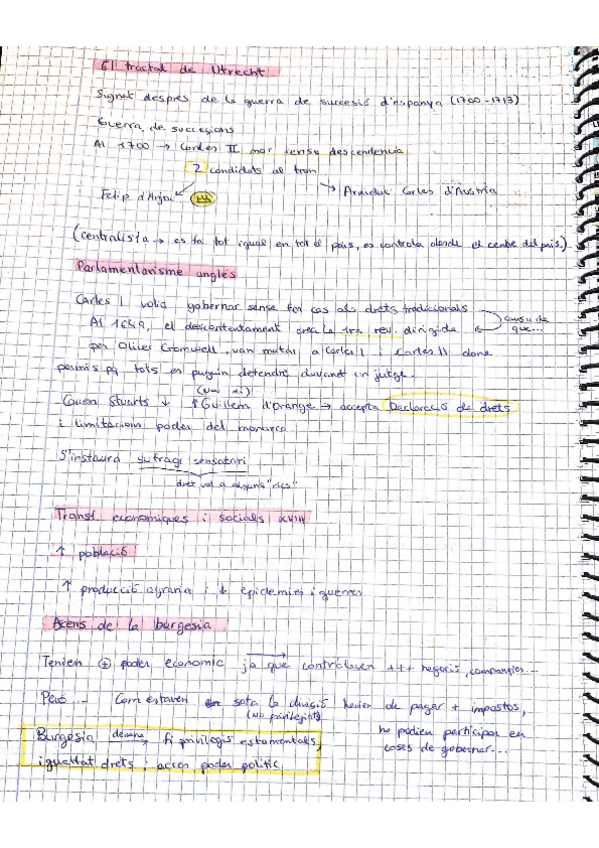 El tractat de Utrecht
Signat després de la guerra de succesió d'espanya (1700-1713)
Guerra de succesions
Al 1700 → Carles II mor sense descendencia
2 candidats al tron
Felip d'Anjou
→ Arxiduc Carles d'Austria
(centralista → es fa tot igual en tot el país, es controla desde el centre del país.)
Parlamentarisme anglés
Carles I volia gobernar sense fer cas als drets tradicionals
Al 1649, el descontentament crea la 1ra rev. dirigida
causa de que...
per Oliver Cromwell, van matar a Carles I i Carles II dona
permís pq tots es puguin detendre davant un jutge.
(nou rei)
Cauen Stuarts ↓ ↑ Guillem d'Orange → accepta Declaració de drets
i limitacions poder del monarca
S'instaura sufragi sensatari
dret vot a alguns "rics"
Transf. económiques i socials XVIII
↑ població
↑ producció agraria i ↓ epidemies i guerres
Acens de la burgesia
Tenien + poder economic ja que controlaven +++ negocis, companyies...
Però... Com estaven sota la divisió havien de pagar + impostos,
(No privilegiats)
no podien participar en
coses de gobernar...
Burgesia demana fi privilegis estamentals,
igualtat drets i acces poder politic.